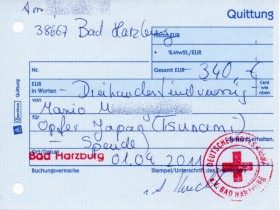 Quittung
38667 Bad Harzburg
Netto EUR
+ %MwSt./EUR
Nr. Gesamt EUR 340,- €
EUR
in Worten -Dreihundert
Cent
wie
oben
von Mario M
für
Opfer Japan (Tsunami)
-Spende) erhalten.
Bad Harzburg 01.04.2011
Ort/Datum
Buchungsvermerke Stempel/Unterschrift des
DEUTSCHES ROTES KREUZ
BAD HARZBURG
Quittung